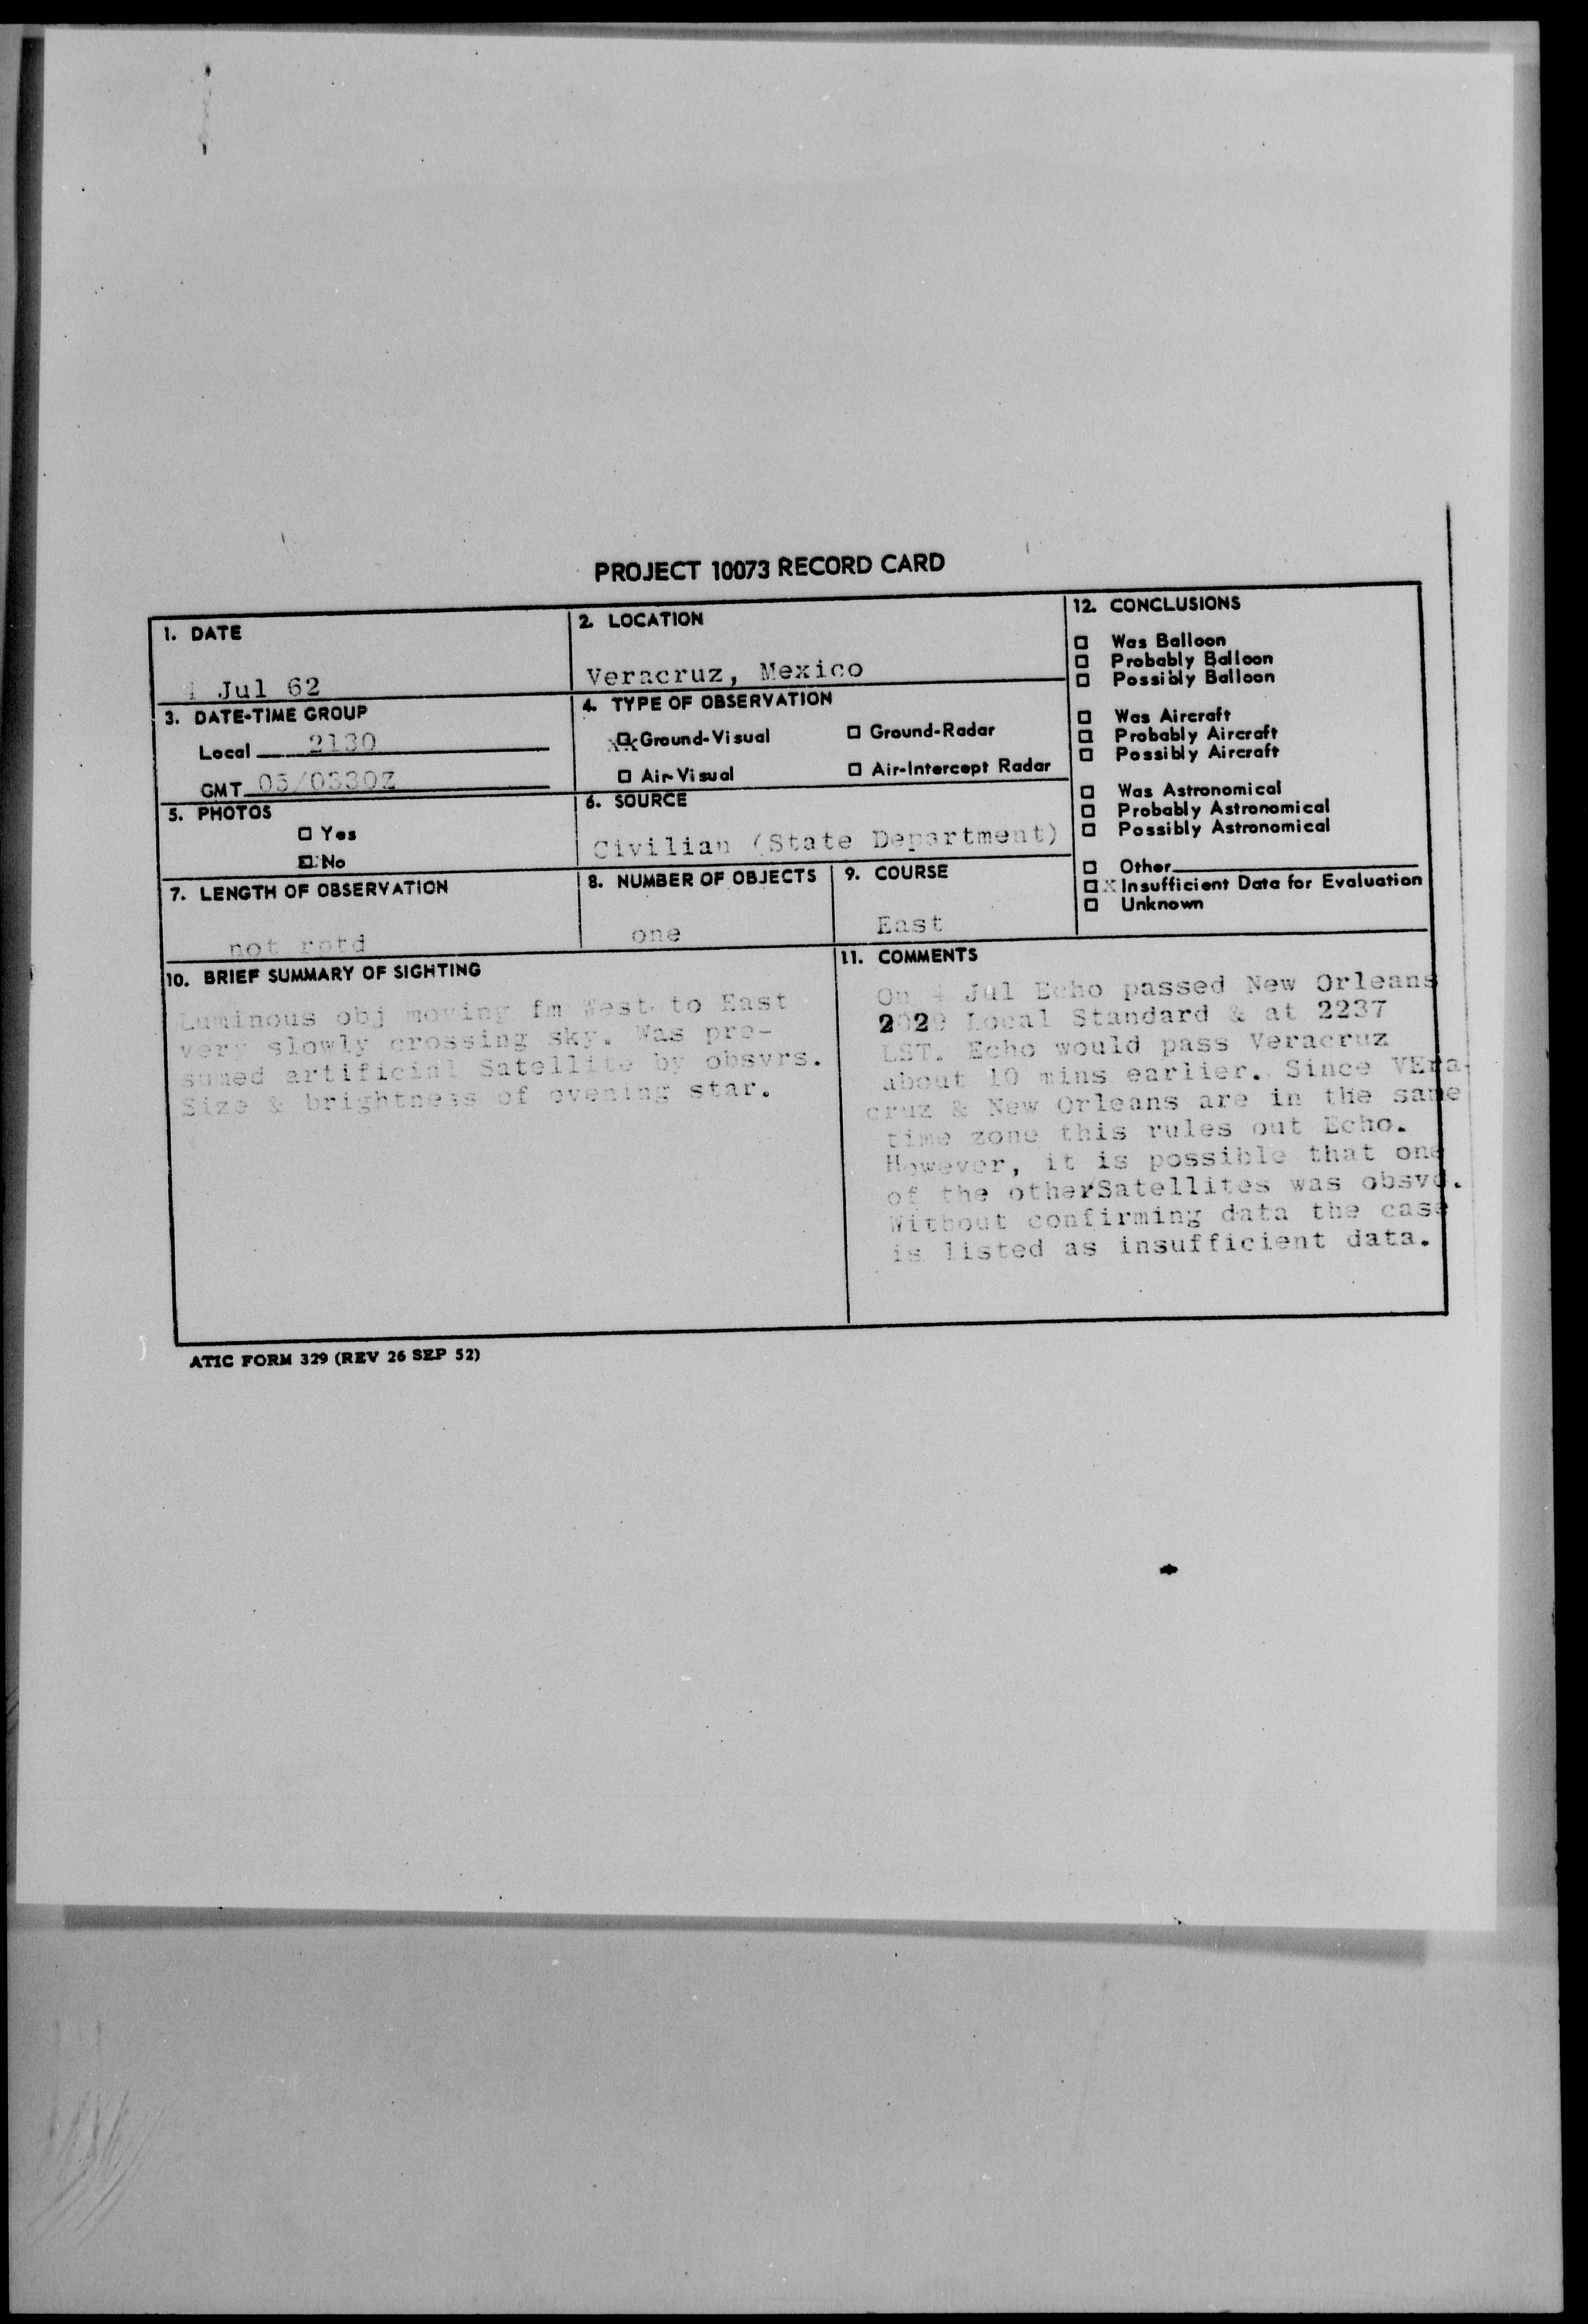 PROJECT 10073 RECORD CARD
1. DATE
4 Jul 62
2. LOCATION
Veracruz, Mexico
3. DATE-TIME GROUP
Local 2130
GMT 05/0330Z
4. TYPE OF OBSERVATION
XX Ground-Visual
Ground-Radar
Air-Visual
Air-Intercept Radar
5. PHOTOS
Yes
X No
6. SOURCE
Civilian (State Department)
7. LENGTH OF OBSERVATION
not rptd
8. NUMBER OF OBJECTS
one
9. COURSE
East
10. BRIEF SUMMARY OF SIGHTING
Luminous obj moving fm West to East
very slowly crossing sky. Was pre-
sumed artificial Satellite by obsvrs.
Size & brightness of evening star.
11. COMMENTS
On 4 Jul Echo passed New Orleans
2029 Local Standard & at 2237
LST. Echo would pass Veracruz
about 10 mins earlier. Since VEra-
cruz & New Orleans are in the same
time zone this rules out Echo.
However, it is possible that one
of the otherSatellites was obsvd.
Without confirming data the case
is listed as insufficient data.
12. CONCLUSIONS
Was Balloon
Probably Balloon
Possibly Balloon
Was Aircraft
Probably Aircraft
Possibly Aircraft
Was Astronomical
Probably Astronomical
Possibly Astronomical
Other
X Insufficient Data for Evaluation
Unknown
ATIC FORM 329 (REV 26 SEP 52)